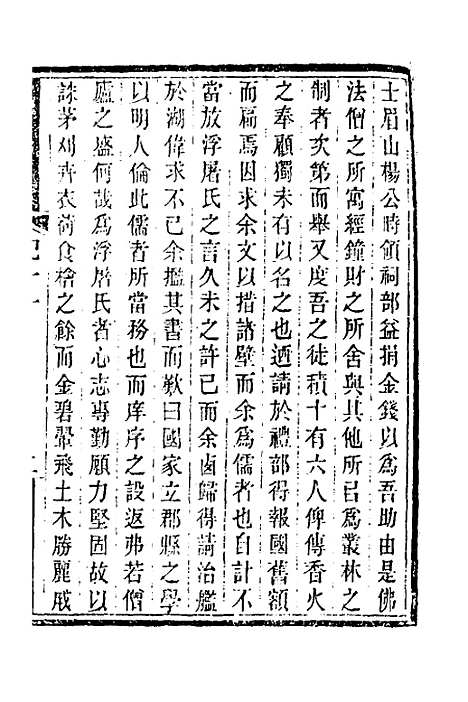 士眉山楊公時領祠部益捐金錢以爲吾助由是佛
法僧之所寓經鐘財之所舍與其他所已爲叢林之
制者次第而舉又度吾之徒積十有六人俾傳香火
之奉顧獨未有以名之也迺請於禮部得報國舊額
而扁焉因求余文以措諸壁而余爲儒者也自計不
當放浮屠氏之言久未之許已而余鹵歸得請治艦
於湖偉求不已余攬其書而歎曰國家立郡縣之學
以明人倫此儒者所當務也而庠序之設返弗若僧
廬之盛何哉爲浮屠氏者心志專勤願力堅固故以
誅茅刈卉衣荷食檜之餘而金碧翬飛土木勝麗戚
記十一